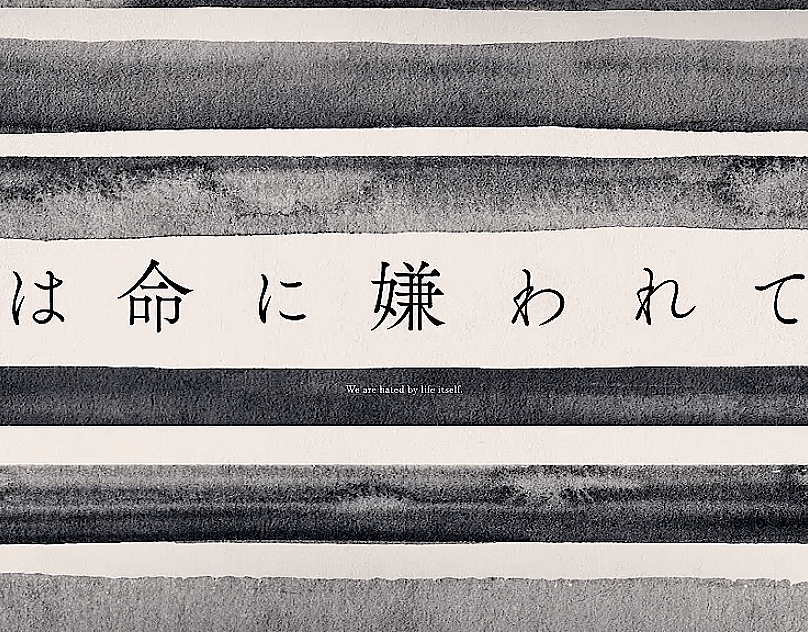 は命に嫌われて
We are hated by life itself.